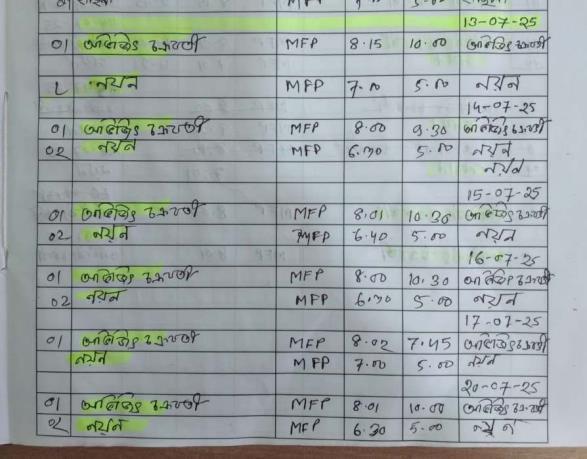 13-07-25
01 অভিজিৎ চক্রবর্তী MFP 8.15 10.00 অভিজিৎ চক্রবর্তী
2 নয়ন MFP 7.00 5.00 নয়ন
14-07-25
01 অভিজিৎ চক্রবর্তী MFP 8.00 9.30 অভিজিৎ চক্রবর্তী
02 নয়ন MFP 6.30 5.00 নয়ন
নয়ন
15-07-25
01 অভিজিৎ চক্রবর্তী MFP 8.01 10.30 অভিজিৎ চক্রবর্তী
02 নয়ন MFP 6.40 5.00 নয়ন
16-07-25
01 অভিজিৎ চক্রবর্তী MFP 8.00 10.30 অভিজিৎ চক্রবর্তী
02 নয়ন MFP 6.30 5.00 নয়ন
17-07-25
01 অভিজিৎ চক্রবর্তী MFP 8.02 7.45 অভিজিৎ চক্রবর্তী
নয়ন MFP 7.00 5.00 নয়ন
20-07-25
01 অভিজিৎ চক্রবর্তী MFP 8.01 10.00 অভিজিৎ চক্রবর্তী
02 নয়ন MFP 6.30 5.00 নয়ন